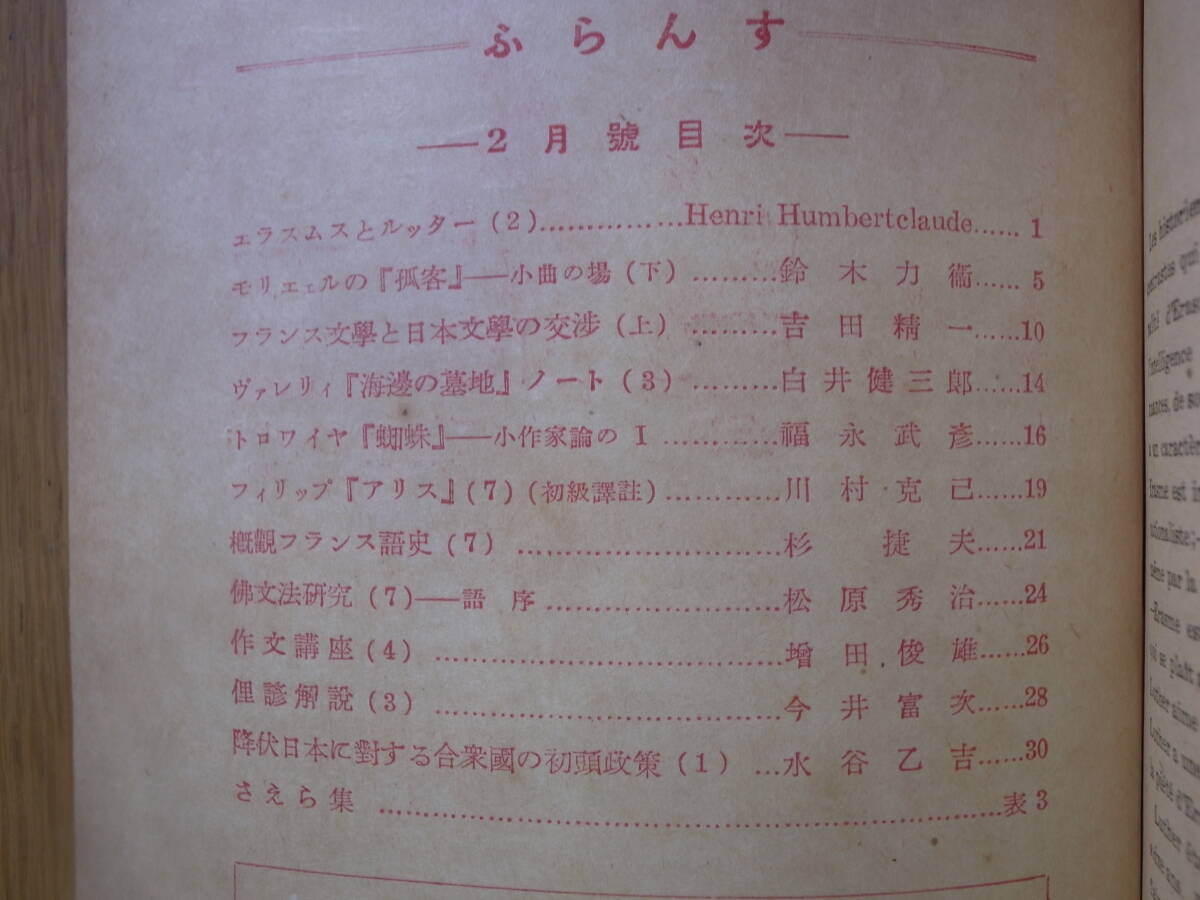 ふらんす
——2月號目次——
エラスムスとルッター(2)……………Henri Humbertclaude……1
モリエェルの『孤客』——小曲の場(下)………鈴木力衞……5
フランス文學と日本文學の交渉(上)………吉田精一……10
ヴァレリィ『海邊の墓地』ノート(3)………白井健三郞……14
トロワイヤ『蜘蛛』——小作家論のI…………福永武彥……16
フィリップ『アリス』(7)(初級譯註)…………川村克己……19
槪觀フランス語史(7)…………………………杉捷夫……21
佛文法硏究(7)——語序………………………松原秀治……24
作文講座(4)…………………………………增田俊雄……26
俚諺解說(3)…………………………………今井富次……28
降伏日本に對する合衆國の初頭政策(1)…水谷乙吉……30
さえら集………………………………………………………………表3
Les historiens
l'intelligence
nances, de so
un caractère
Erasme est in
même par la
-Erasme est
qui se plaît
Luther aimai
Luther a une
Luther étai